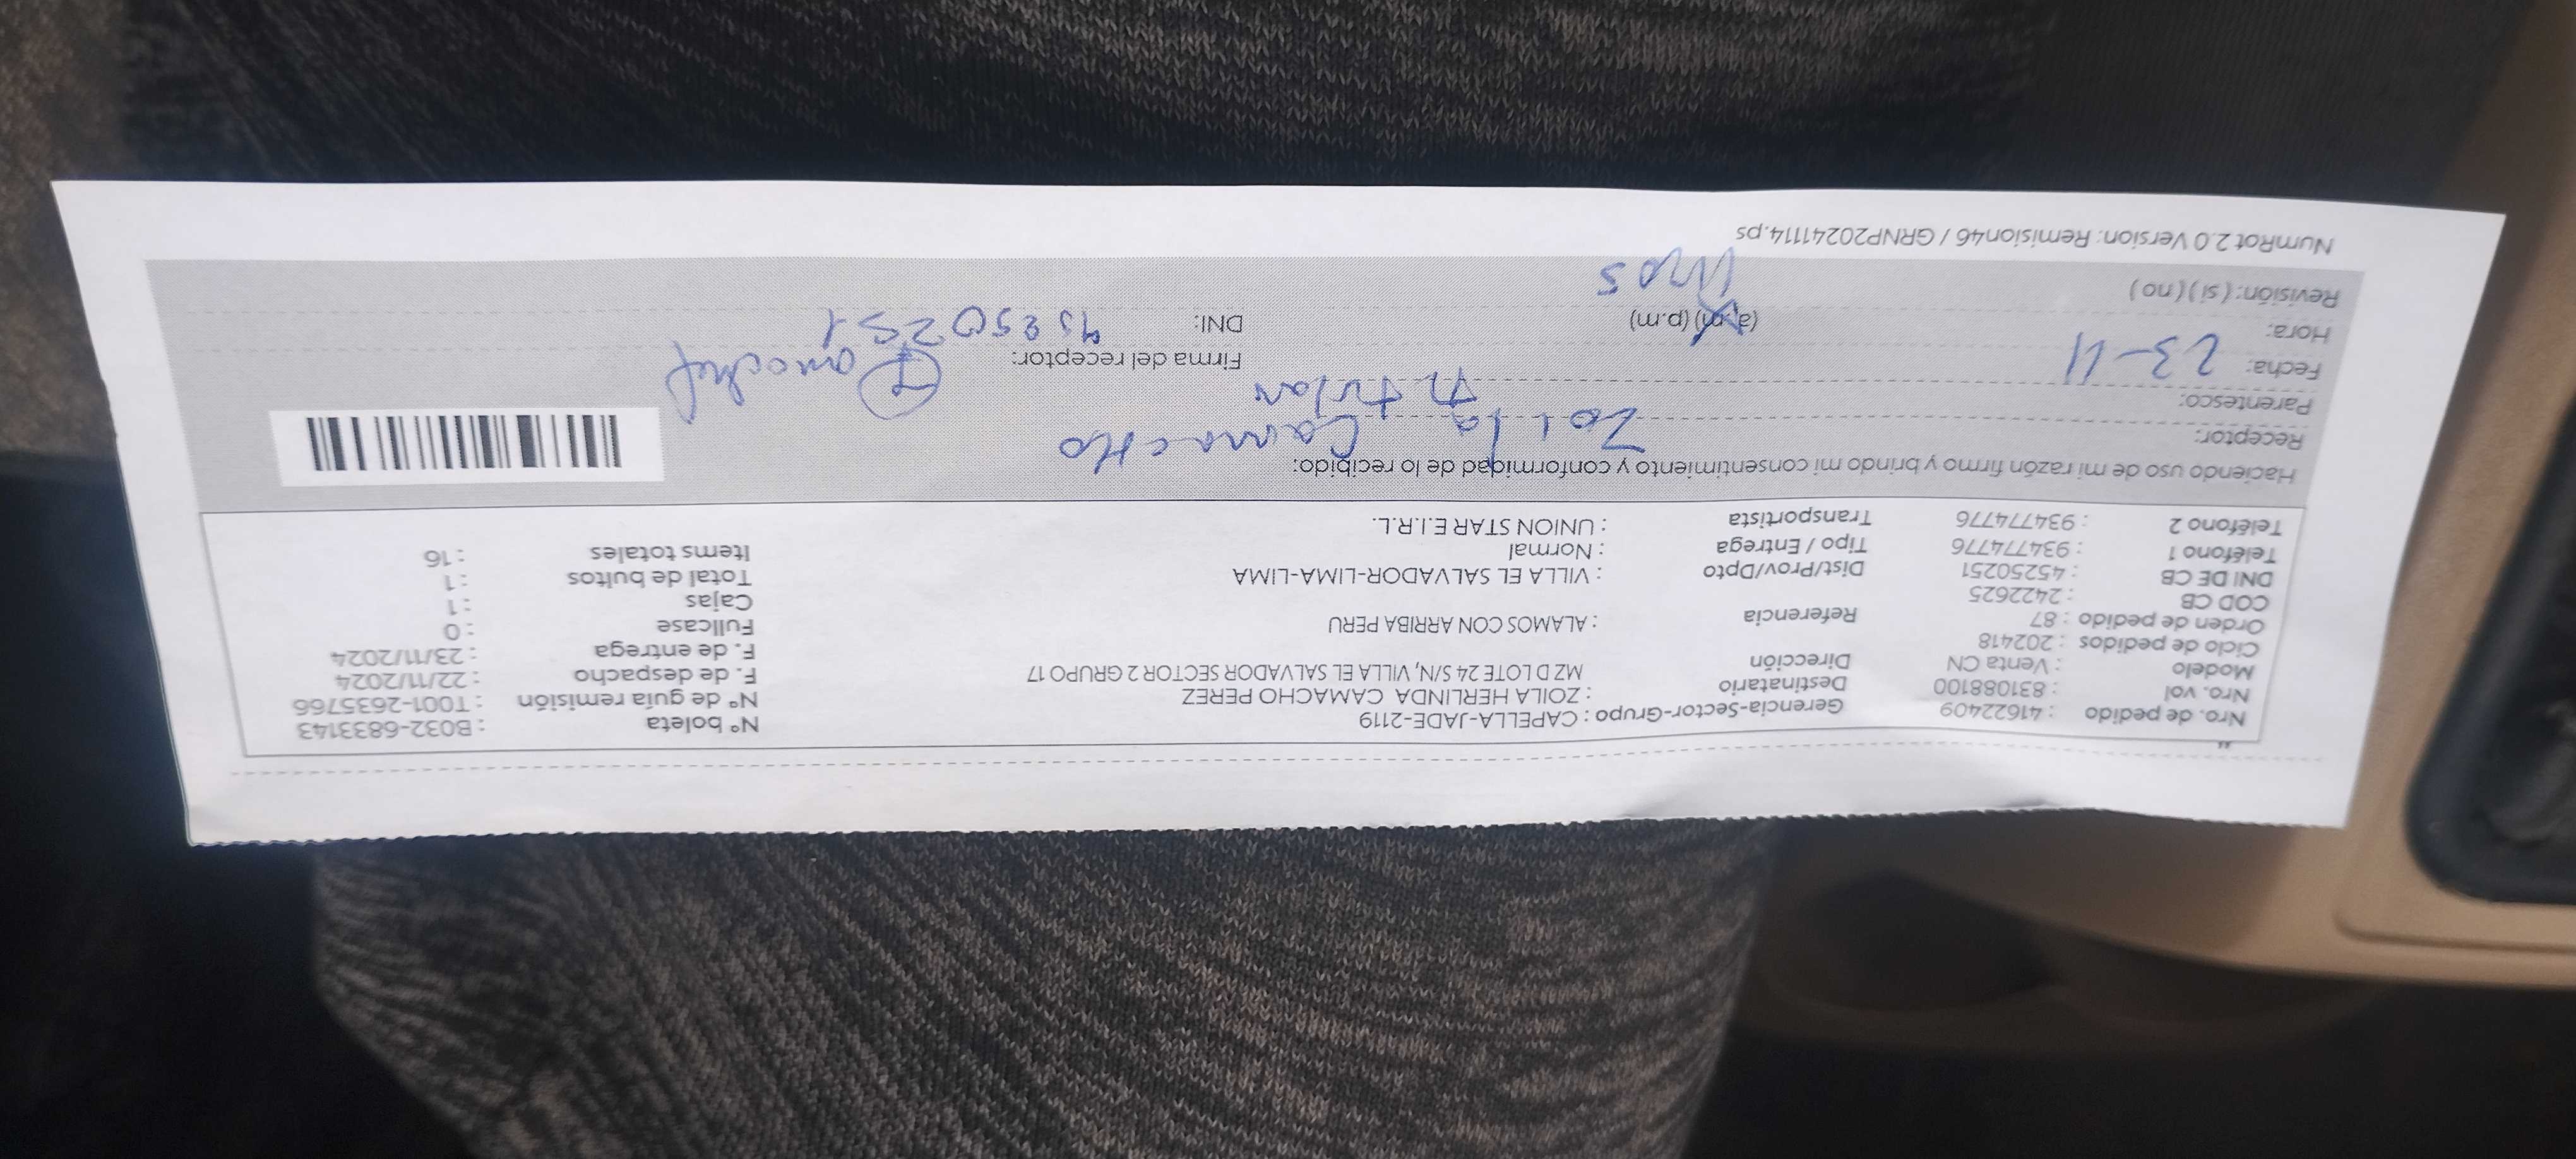 Nro. de pedido : 41622409 Gerencia-Sector-Grupo : CAPELLA-JADE-2119 N° boleta : B032-6833143
Nro. vol : 831088100 Destinatario : ZOILA HERLINDA CAMACHO PEREZ N° de guía remisión : T001-2635766
Modelo : Venta CN Dirección MZ D LOTE 24 S/N, VILLA EL SALVADOR SECTOR 2 GRUPO 17 F. de despacho : 22/11/2024
Ciclo de pedidos : 202418 F. de entrega : 23/11/2024
Orden de pedido : 87 Referencia : ALAMOS CON ARRIBA PERU Fullcase : 0
COD CB : 2422625 Cajas : 1
DNI DE CB : 45250251 Dist/Prov/Dpto : VILLA EL SALVADOR-LIMA-LIMA Total de bultos : 1
Teléfono 1 : 934774776 Tipo / Entrega : Normal Items totales : 16
Teléfono 2 : 934774776 Transportista : UNION STAR E.I.R.L.
Haciendo uso de mi razón firmo y brindo mi consentimiento y conformidad de lo recibido:
Receptor: Zoila Camacho
Parentesco: titular
Fecha: 23-11 Firma del receptor:
Hora: (a.m) (p.m) DNI: 45250251
Revisión: ( si ) ( no )
NumRot 2.0 Version: Remision46 / GRNP20241114.ps